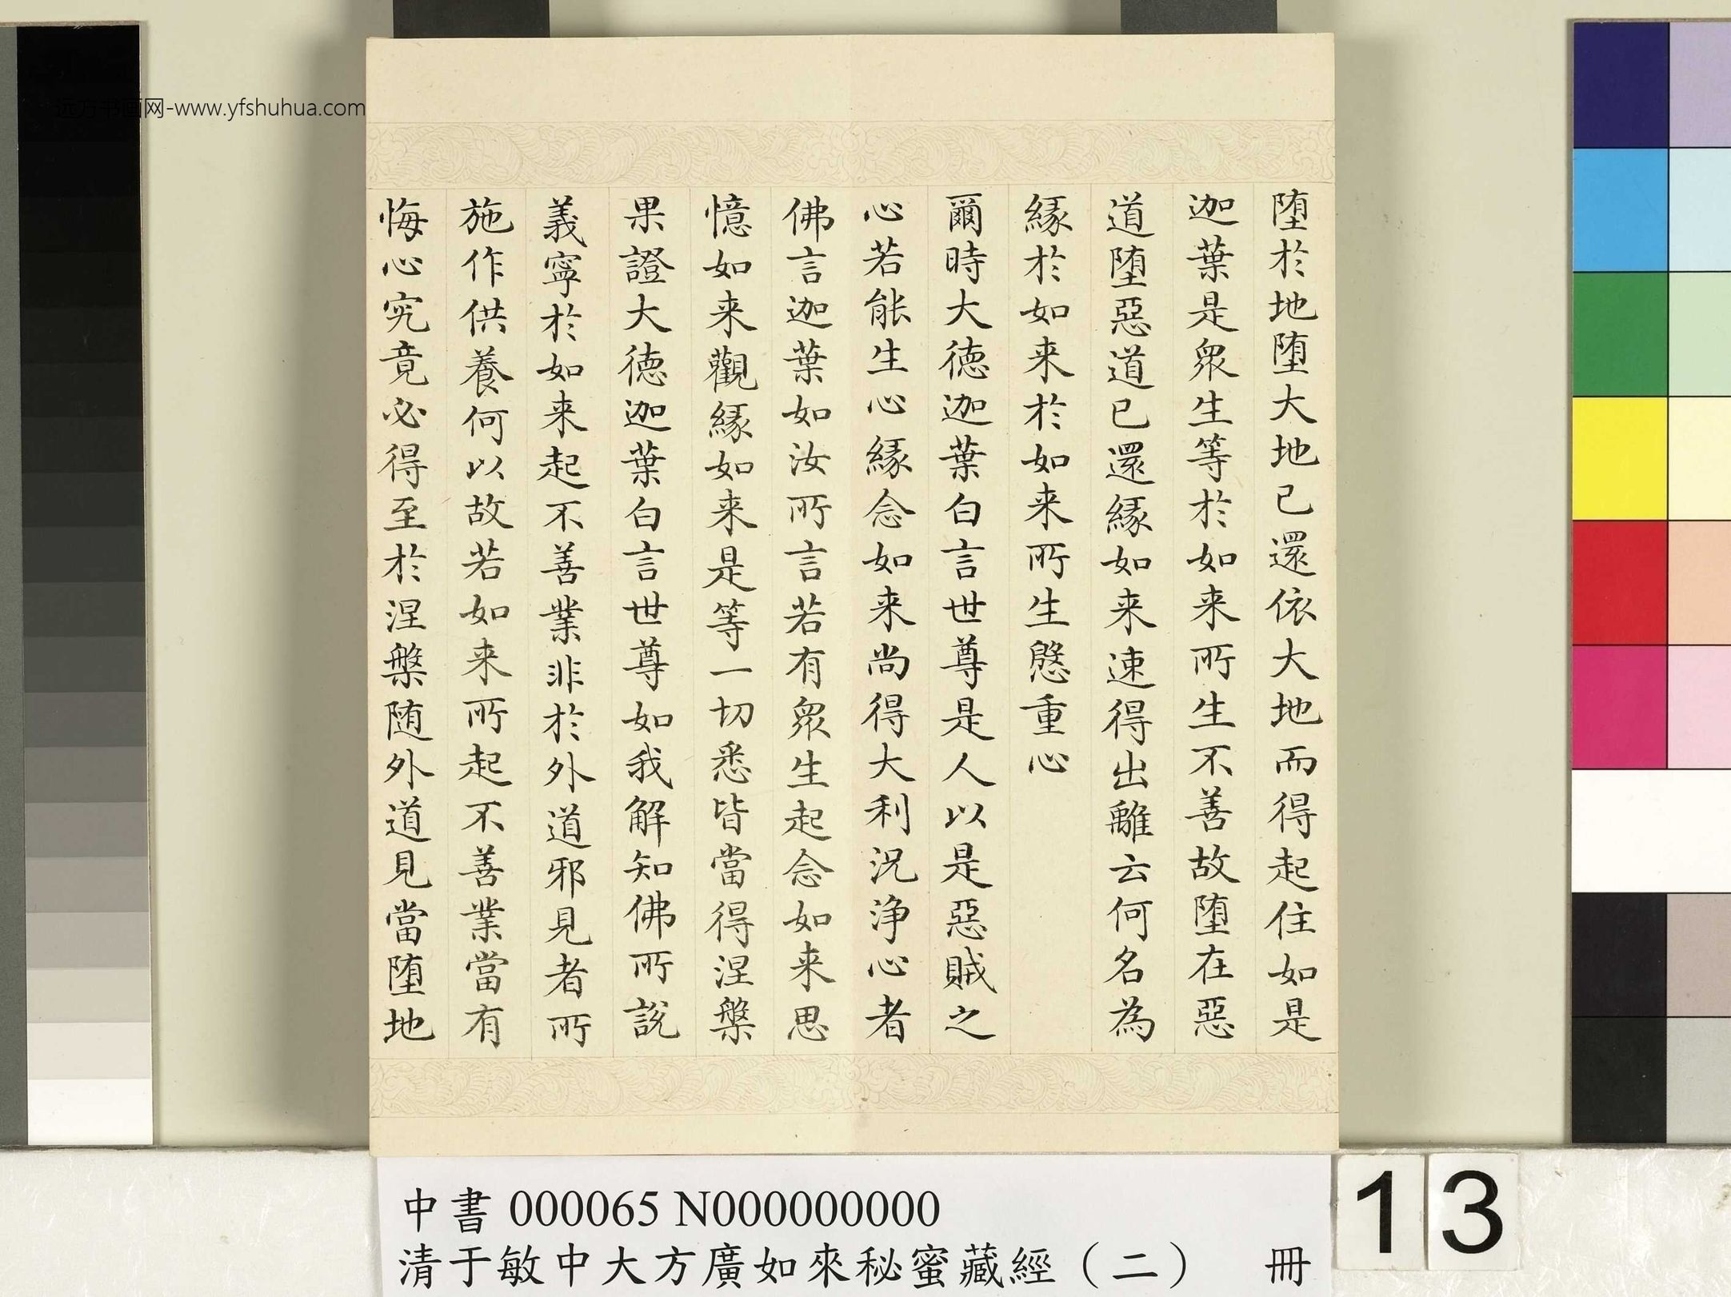 堕於地堕大地已還依大地而得起住如是
迦葉是眾生等於如来所生不善故堕在惡
道堕惡道已還緣如来速得出離云何名為
緣於如来於如来所生慇重心
爾時大德迦葉白言世尊是人以是惡賊之
心若能生心緣念如来尚得大利況浄心者
佛言迦葉如汝所言若有眾生起念如来思
憶如来觀緣如来是等一切悉皆當得涅槃
果證大德迦葉白言世尊如我解知佛所說
義寧於如来起不善業非於外道邪見者所
施作供養何以故若如来所起不善業當有
悔心究竟必得至於涅槃随外道見當堕地
中書 000065 N000000000
清于敏中大方廣如來秘蜜藏經（二） 冊
13
远方书画网-www.yfshuhua.com